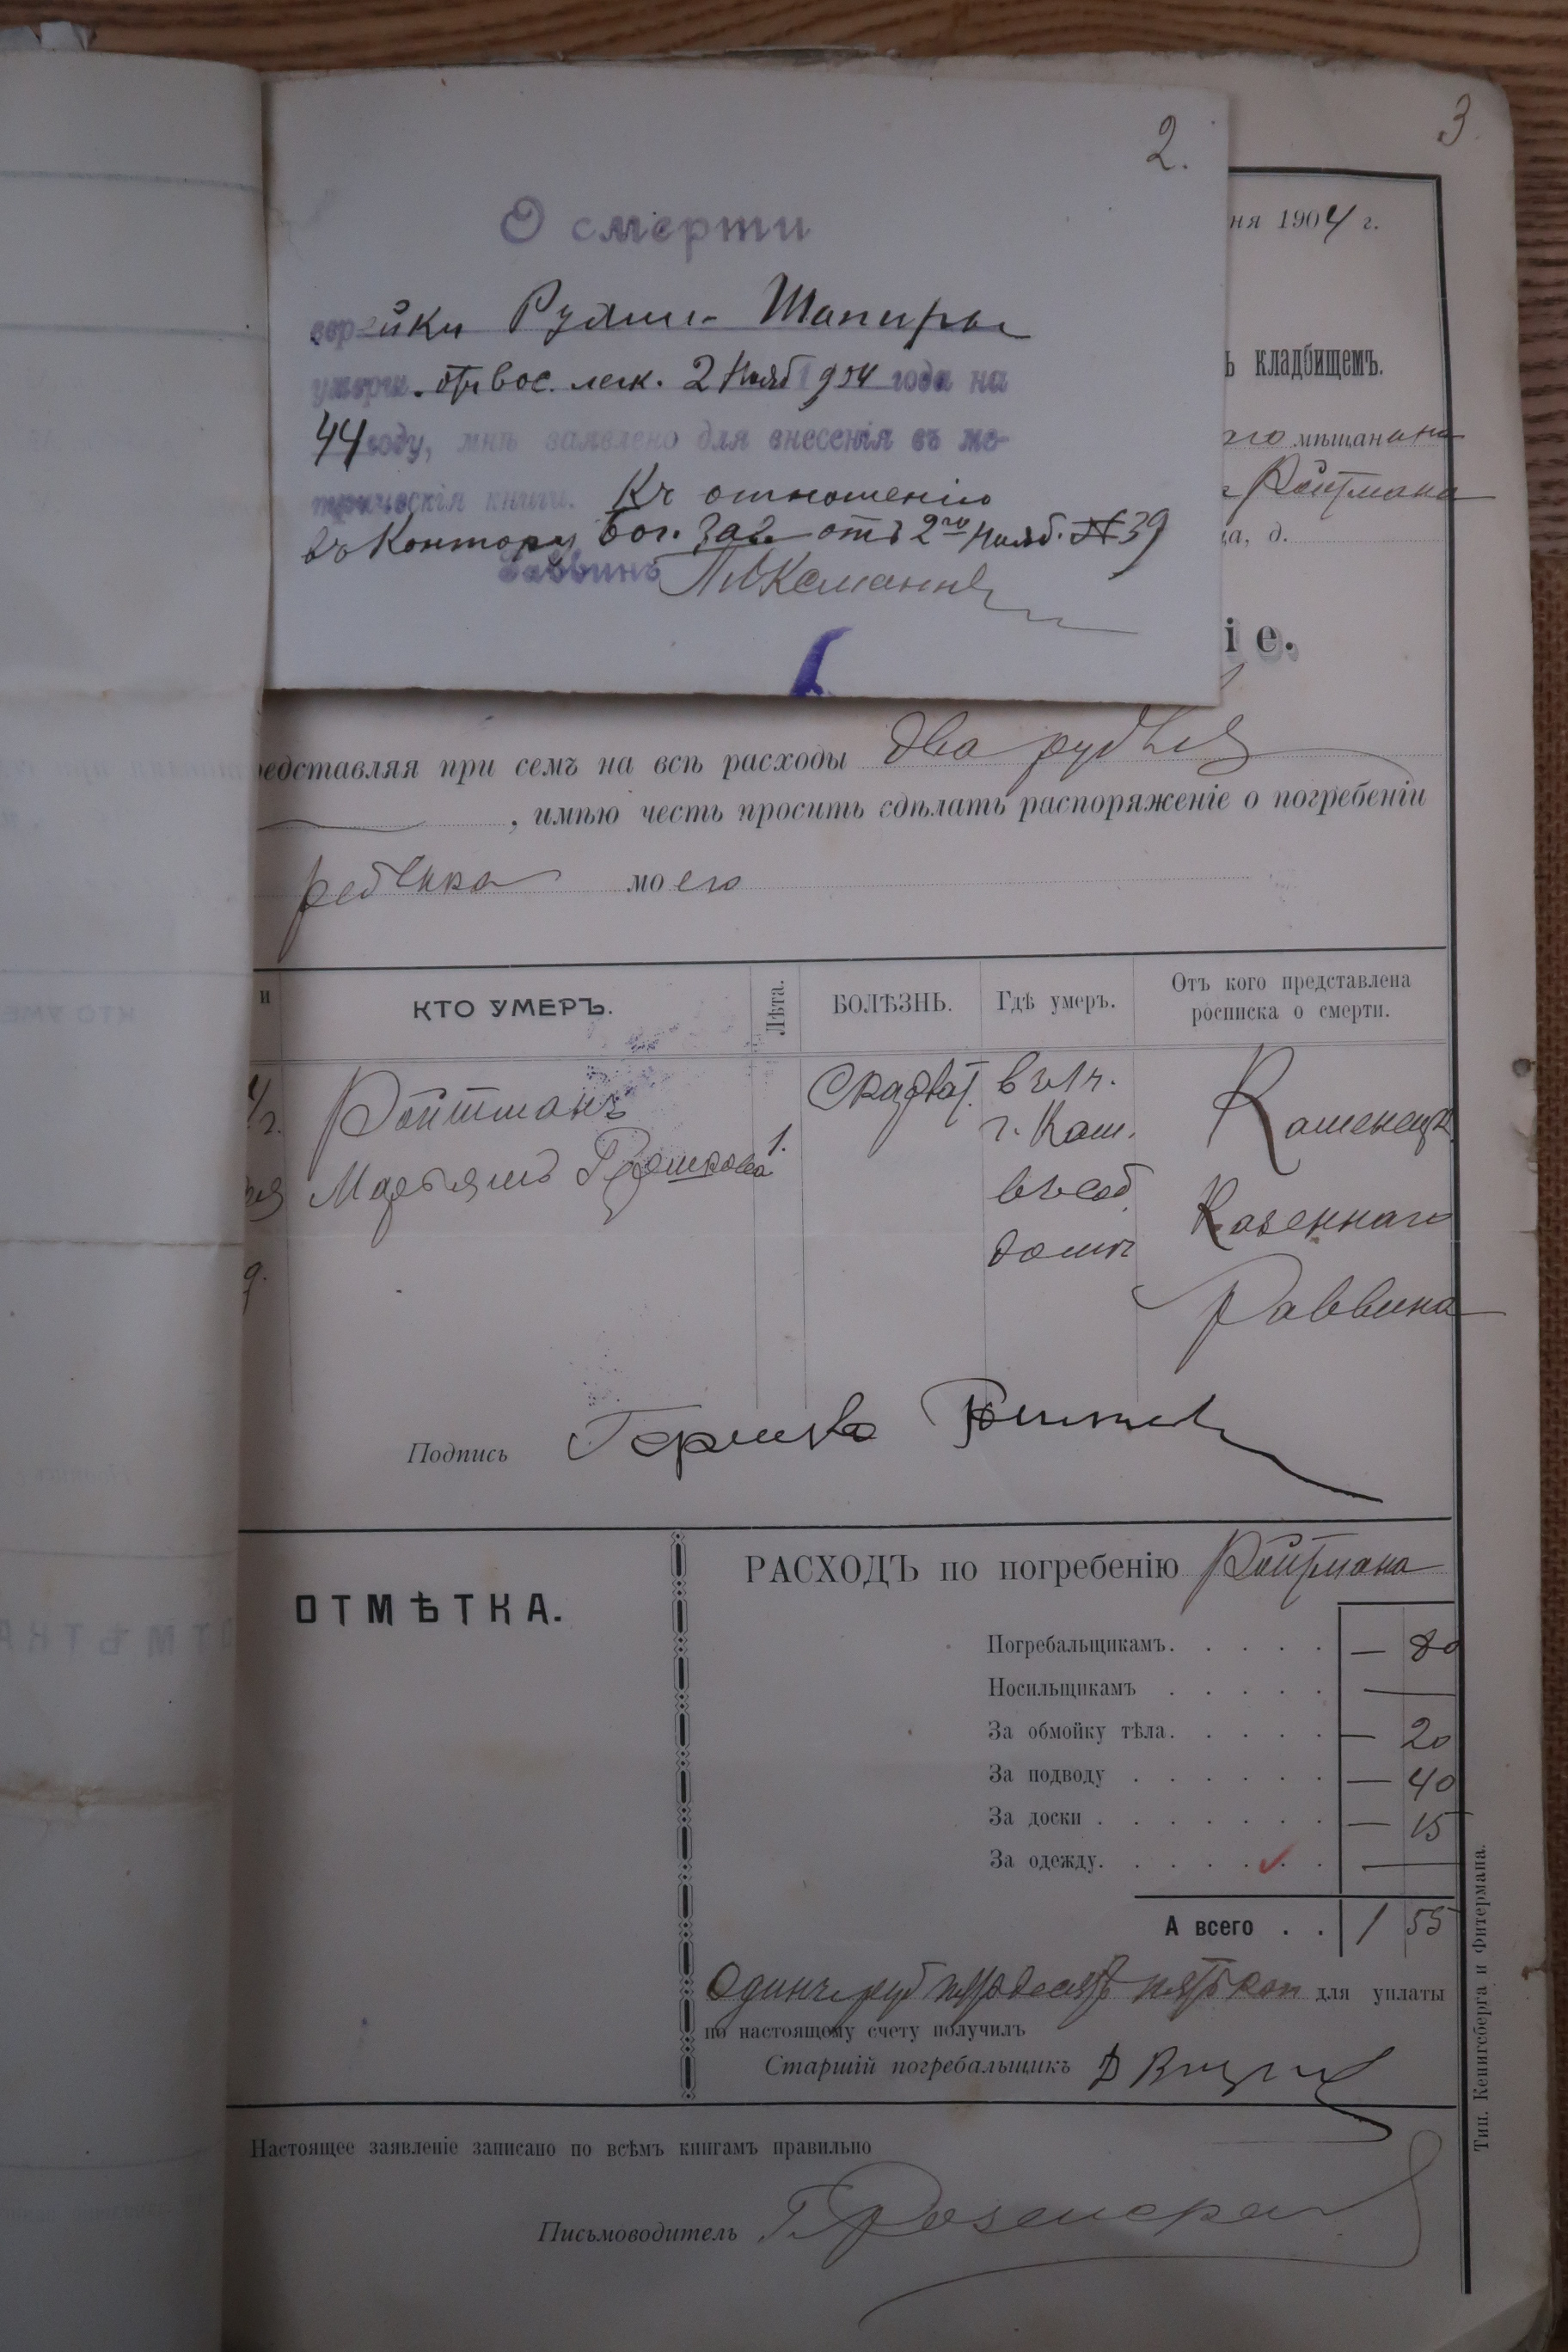 3
2.
О смерти
еврейки Рухли Шапиры
умерш. от вос. легк. 2 Нояб 1904 года на
44 году, мнѣ заявлено для внесенія въ ме-
трическія книги. Къ отношенію
въ Контору Бог. Зав. отъ 2го Нояб. № 39
Раввинъ
ня 1904 г.
ъ кладбищемъ.
аго мѣщанина
Ройтмана
ца, д.
іе.
редставляя при семъ на всѣ расходы два рубля
, имѣю честь просить сдѣлать распоряженіе о погребеніи
ребенка моего
и КТО УМЕРЪ. Лѣта. БОЛѢЗНЬ. Гдѣ умеръ. Отъ кого представлена
росписка о смерти.
г. Ройтманъ 1. въ г. Кам. Каменецк.
Марьямъ въ соб. Казеннаго
домѣ Раввина
Подпись Гершко
ОТМѢТКА.
РАСХОДЪ по погребенію Ройтмана
Погребальщикамъ. — 80
Носильщикамъ —
За обмойку тѣла. — 20
За подводу — 40
За доски — 15
За одежду. —
А всего 1 55
Одинъ руб пятьдесятъ пять коп для уплаты
по настоящему счету получилъ
Старшій погребальщикъ
Настоящее заявленіе записано по всѣмъ книгамъ правильно
Письмоводитель
Тип. Кенигсберга и Фитермана.